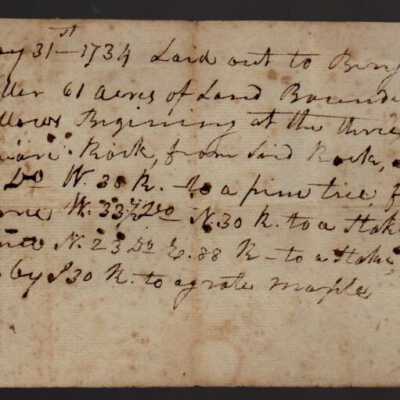 ay 31st – 1734 Laid out to Benj
ller 61 acres of Land Bounde
llows Begining at the three
uare Rock, from Said Rock,
Do W. 38 R. to a pine tree, f
nce W. 33½ Do N. 30 R. to a Stak
nce N. 23 Do E. 88 R – to a Stake,
by S 30 R. to a grate maple